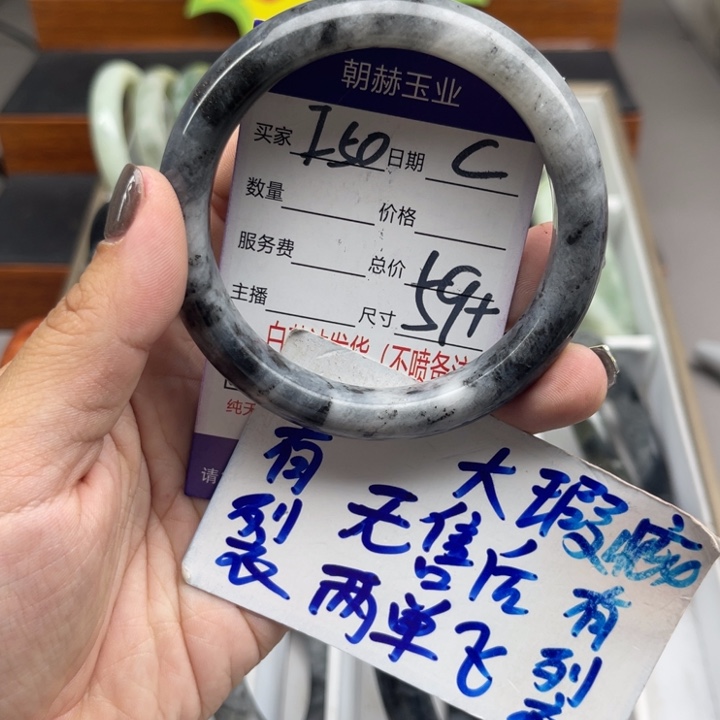 朝赫玉业
买家 I50 日期 C
数量 价格
服务费 总价
主播 尺寸 59+
发货(不喷备注
纯天
请
有裂
大瑕疵
无售后
两单飞
有列